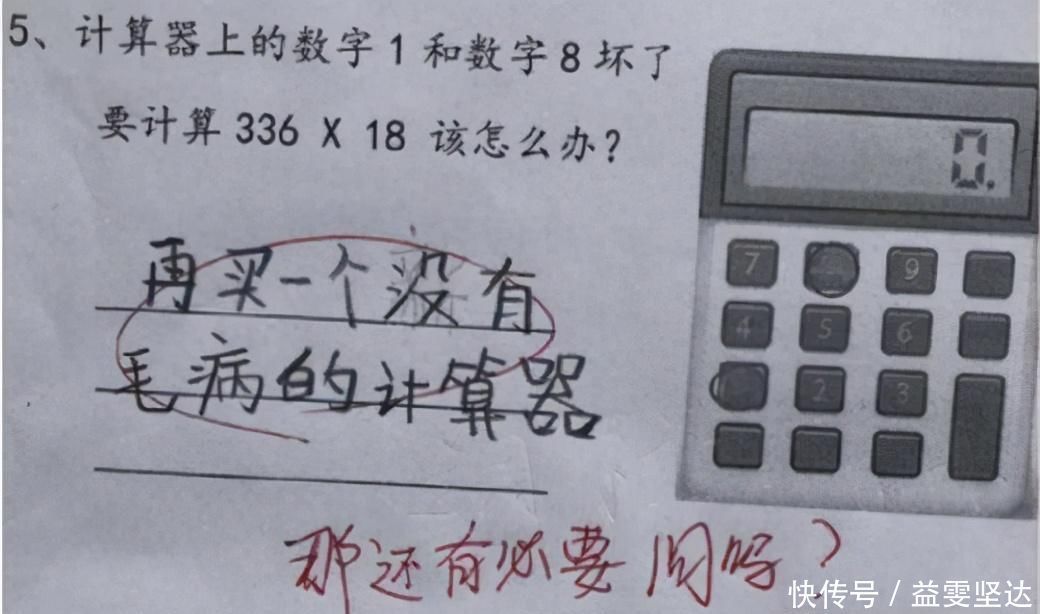 5、计算器上的数字1和数字8坏了
要计算 336 X 18 该怎么办?
再买一个没有
毛病的计算器
那还有必要问吗?
0.
7 9
4 5 6
2 3
快传号 / 益雯坚达